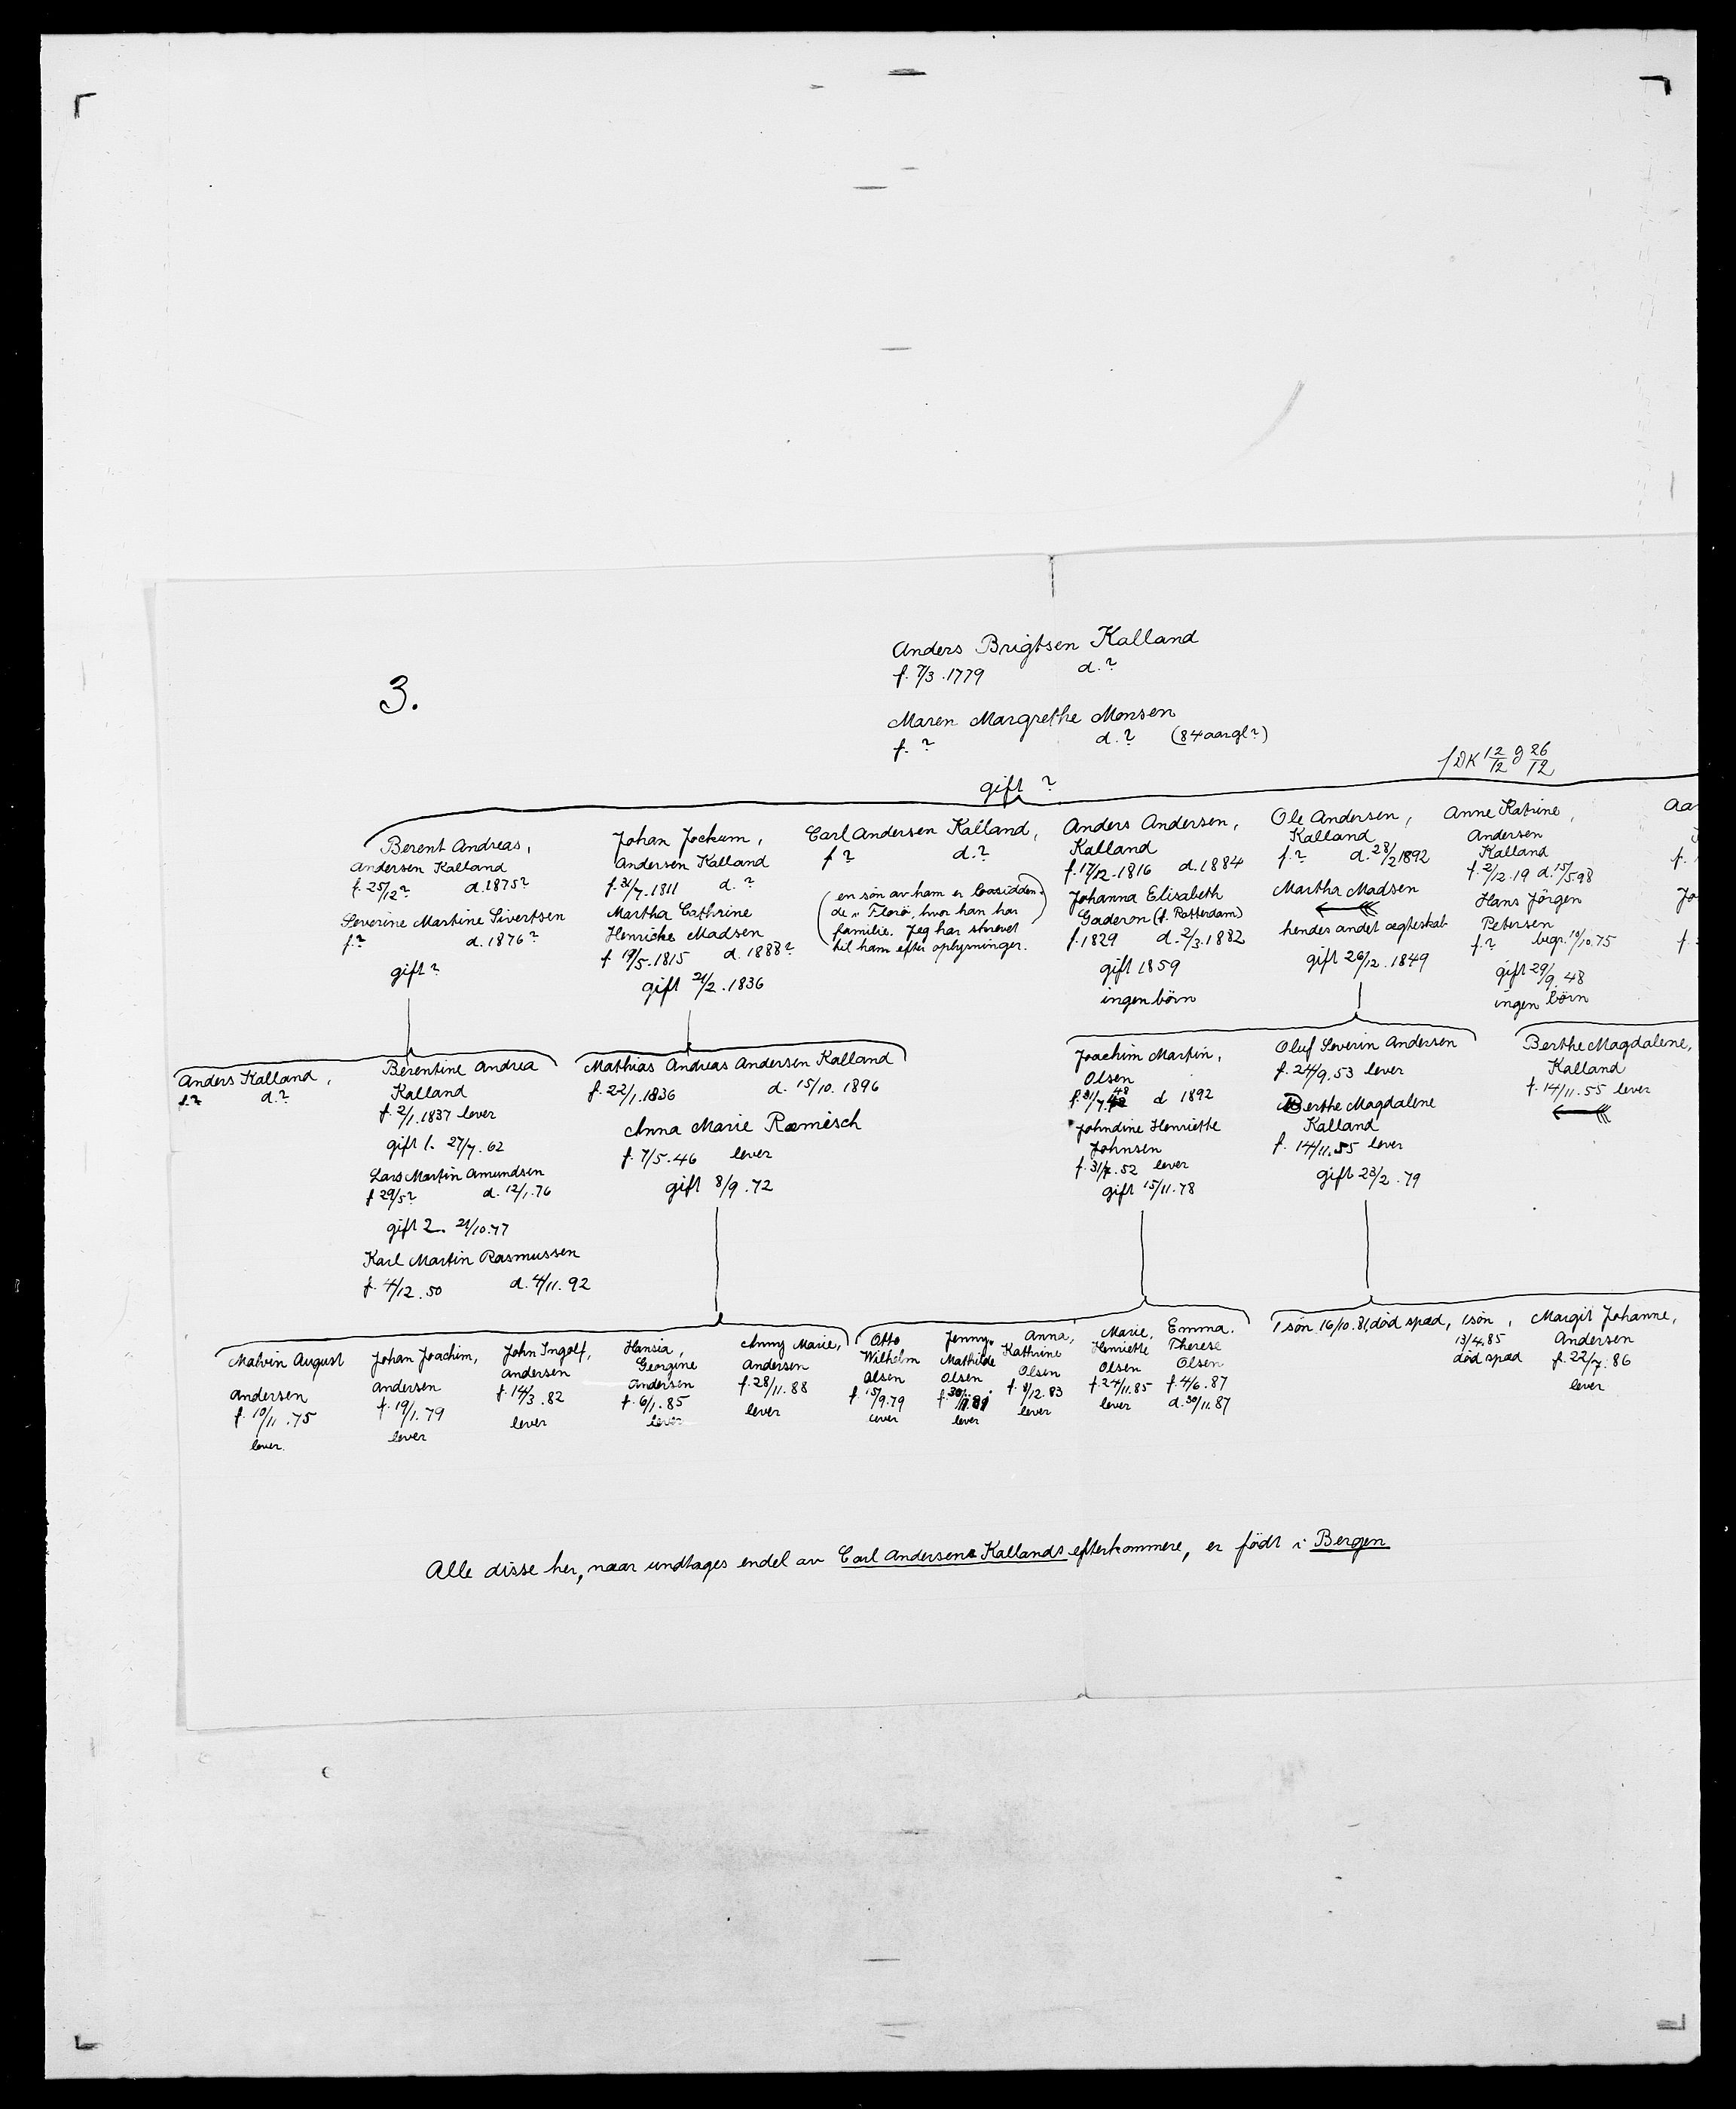 3.
Anders Brigtsen Kalland
f. 7/3.1779 d.?
Maren Margrethe Monsen
f. ? d.? (84 aar gl?)
gift ?
12/12 26/12
Berent Andreas,
Andersen Kalland
f. 25/12? d.1875?
Severine Martine Sivertsen
f.? d. 1876?
gift?
Johan Jochum,
Andersen Kalland
f. 31/7.1811 d. ?
Martha Cathrine
Henricke Madsen
f. 19/5.1815 d. 1888?
gift 21/2.1836
Carl Andersen Kalland,
f ? d.?
(en søn av ham er bosidden-
de i Florö, hvor han har
familie. Jeg har skrevet
til ham efter oplysninger.)
Anders Andersen,
Kalland
f. 17/12.1816 d.1884
Johanna Elisabeth
Gaderon (f. Rotterdam)
f. 1829 d. 2/3.1882
gift 1859
ingen børn
Ole Andersen,
Kalland
f.? d. 28/2 1892
Martha Madsen
hendes andet ægteskab
gift 26/12.1849
Anne Katrine,
Andersen
Kalland
f. 2/12.19 d. 15/5 98
Hans Jörgen
Petersen
f.? begr. 10/10.75
gift 29/9.48
ingen börn
Aa
f.
Jo
f.
Anders Kalland,
f.? d.?
Berentine Andrea
Kalland
f. 2/1.1837 lever
gift 1. 27/7.62
Lars Martin Amundsen
f 29/5? d. 12/1.76
gift 2. 21/10.77
Karl Martin Rasmussen
f. 4/12.50 d. 4/11.92
Mathias Andreas Andersen Kalland
f. 22/1.1836 d. 15/10.1896
Anna Marie Ræmisch
f. 7/5.46 lever
gift 8/9.72
Joachim Martin,
Olsen
f. 31/7.48 d 1892
Johndine Henriette
Johnsen
f. 31/7.52 lever
gift 15/11.78
Oluf Severin Andersen
f. 24/9.53 lever
Berthe Magdalene
Kalland
f. 14/11.55 lever
gift 23/2.79
Berthe Magdalene,
Kalland
f. 14/11.55 lever
Malvin August
Andersen
f. 10/11.75
lever.
Johan Joachim,
Andersen
f. 19/1.79
lever
John Ingolf,
Andersen
f. 14/3.82
lever
Hansia,
Georgine
Andersen
f. 6/1.85
lever
Anny Marie,
Andersen
f. 28/11.88
lever
Otto
Wilhelm
Olsen
f. 15/9.79
lever
Jenny,
Mathilde
Olsen
lever
Anna,
Kathrine
Olsen
f. 8/12.83
lever
Marie,
Henriette
Olsen
f. 24/11.85
lever
Emma.
Therese
Olsen
f. 4/6.87
d. 30/11.87
1 søn 16/10.81, død spæd,
1 søn,
13/4.85
død spæd
Margit Johanne,
Andersen
f. 22/7.86
lever
Alle disse her, naar undtages endel av Carl Andersens Kallands efterkommere, er födt i Bergen